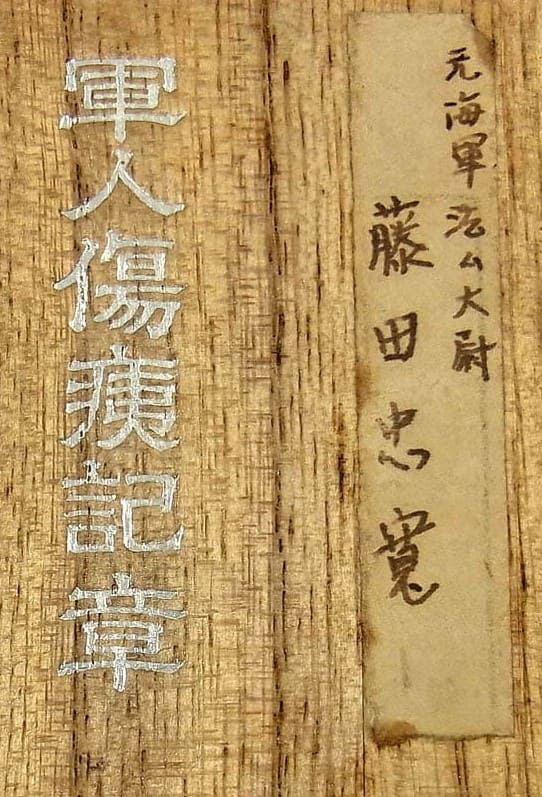 元海軍法ム大尉
藤田忠寛
軍人傷痍記章